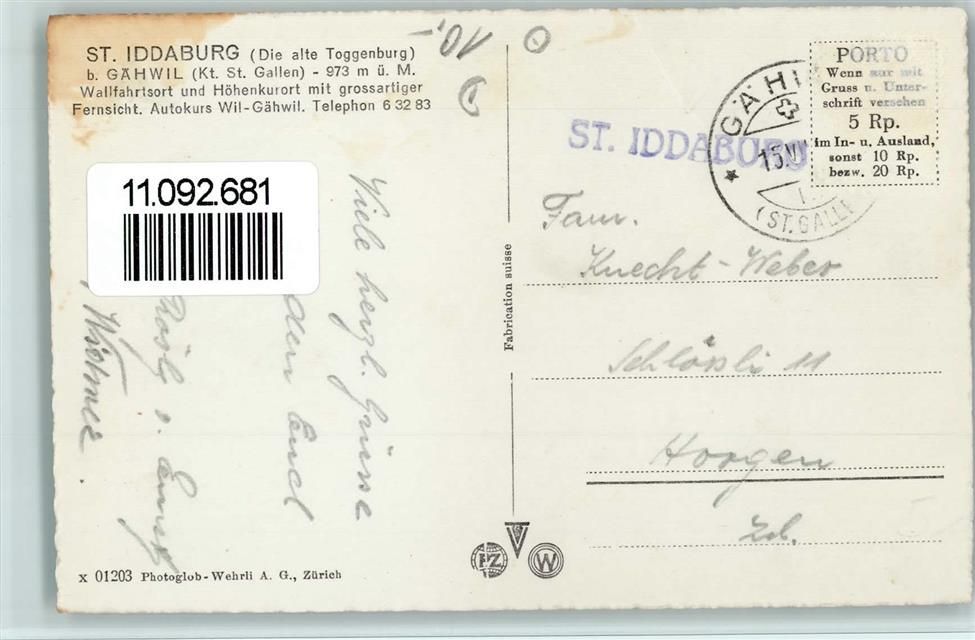 ST. IDDABURG (Die alte Toggenburg)
b. GÄHWIL (Kt. St. Gallen) - 973 m ü. M.
Wallfahrtsort und Höhenkurort mit grossartiger
Fernsicht. Autokurs Wil-Gähwil. Telephon 6 32 83
10.-
11.092.681
Viele herzl. Grüsse
Euch
Rösly
Widmer.
PORTO
Wenn nur mit
Gruss u. Unter-
schrift versehen
5 Rp.
im In- u. Ausland,
sonst 10 Rp.
bezw. 20 Rp.
GÄHWIL
15.V
(ST. GALLEN)
ST. IDDABURG
Fam.
Knecht-Weber
Schlössli 11
Horgen
Zch.
Fabrication suisse
PZ
W
x 01203 Photoglob-Wehrli A. G., Zürich